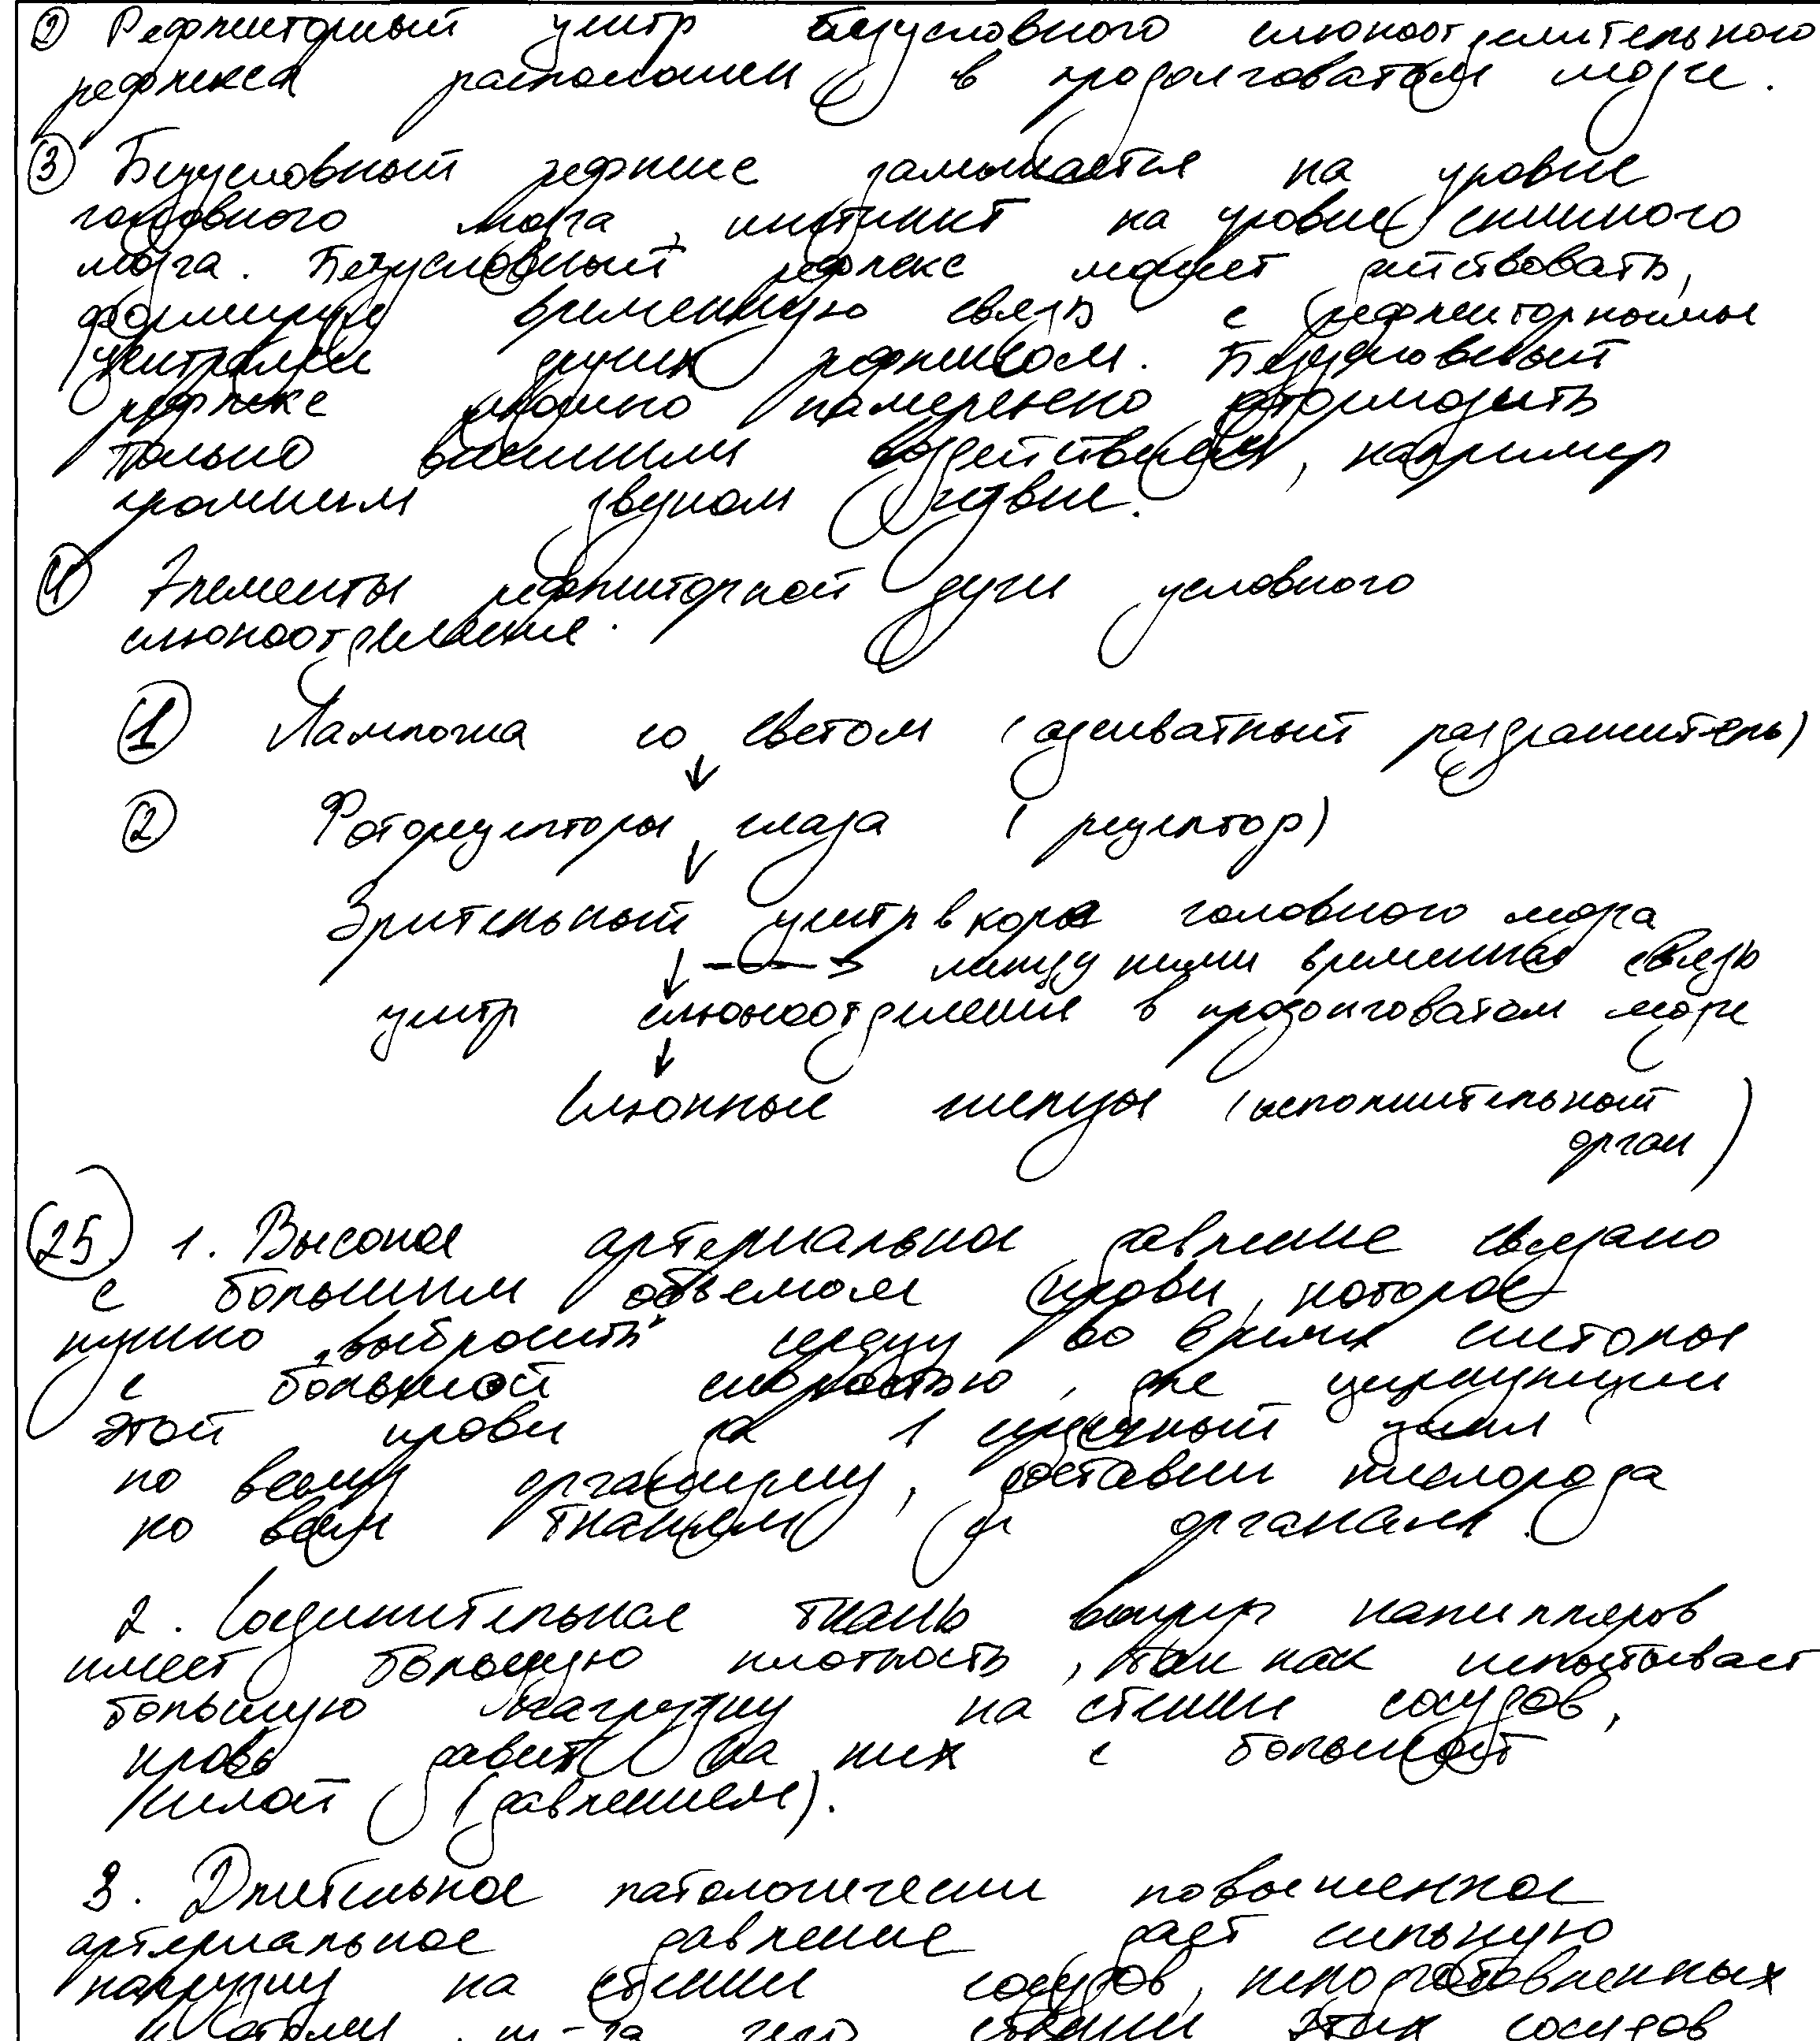 ② Рефлекторный центр безусловного слюноотделительного
рефлекса расположен в продолговатом мозге.
③ Безусловный рефлекс замыкается на уровне
головного мозга, инстинкт на уровне спинного
мозга. Безусловный рефлекс может действовать,
формируя временную связь с рефлекторными
центрами других рефлексом. Безусловный
рефлекс можно намеренно затормозить
только внешним воздействием, например
громким звуком извне.
④ Элементы рефлекторной дуги условного
слюноотделения.
① Лампочка со светом (адекватный раздражитель)
② Фоторецепторы глаза (рецептор)
Зрительный центр в коре головного мозга
между ними временная связь
центр слюноотделения в продолговатом мозге
Слюнные железы (исполнительный
орган)
25. 1. Высокое артериальное давление связано
с большим объемом крови, которое
нужно "выбросить" сердцу во время систолы
с большой скоростью, для циркуляции
этой крови за 1 сердечный цикл
по всему организму, доставки кислорода
ко всем тканям и органам.
2. Соединительная ткань вокруг капилляров
имеет большую плотность, так как испытывает
большую нагрузку на стенки сосудов,
кровь давит на них с большой
силой (давлением).
3. Длительное патологически повышенное
артериальное давление даёт сильную
нагрузку на стенки сосудов, неподготовленных
к этому, из-за чего стенки этих сосудов